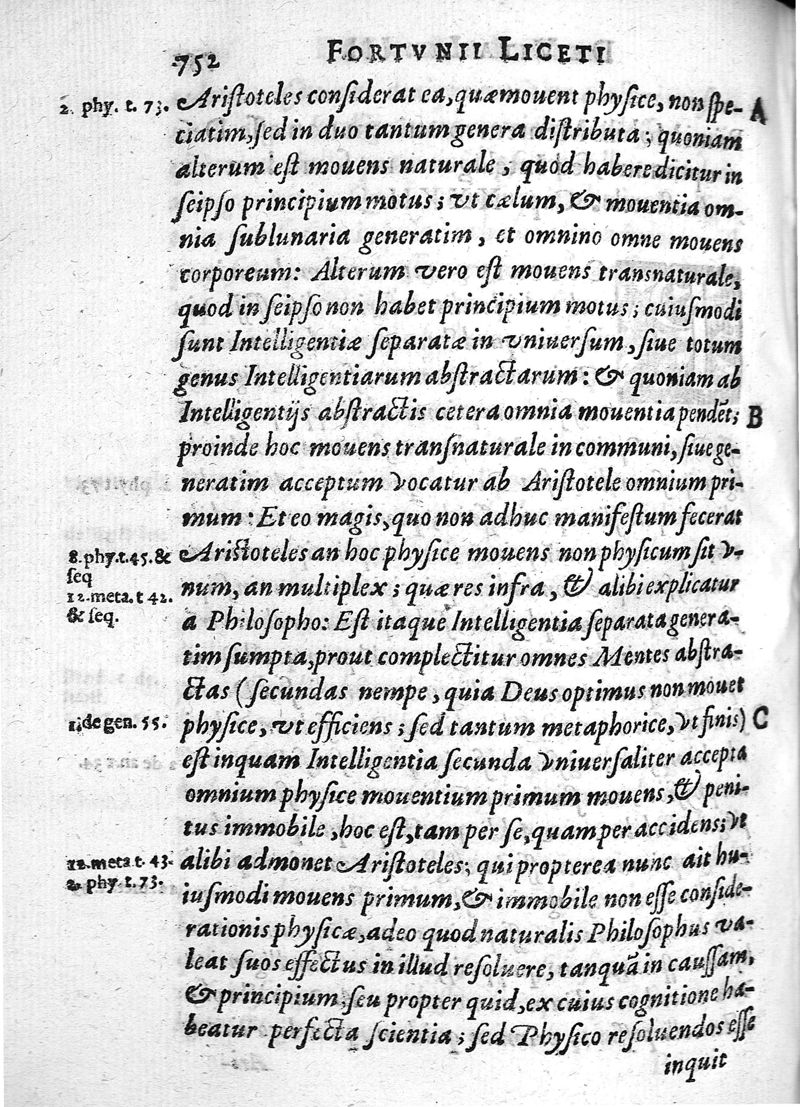 752 FORTVNII LICETI
2. phy. t. 73. Aristoteles considerat ea, quæ mouent physice, non spe- A
ciatim, sed in duo tantum genera distributa; quoniam
alterum est mouens naturale, quod habere dicitur in
seipso principium motus; vt cælum, & mouentia om-
nia sublunaria generatim, et omnino omne mouens
corporeum: Alterum vero est mouens transnaturale,
quod in seipso non habet principium motus; cuiusmodi
sunt Intelligentiæ separatæ in vniuersum, siue totum
genus Intelligentiarum abstractarum: & quoniam ab
Intelligentijs abstractis cetera omnia mouentia pendēt; B
proinde hoc mouens transnaturale in communi, siue ge-
neratim acceptum vocatur ab Aristotele omnium pri-
mum: Et eo magis, quo non adhuc manifestum fecerat
8. phy. t. 45. & Aristoteles an hoc physice mouens non physicum sit v-
seq
12. meta. t 42. num, an multiplex; quæ res infra, & alibi explicatur
& seq. a Philosopho: Est itaque Intelligentia separata genera-
tim sumpta, prout complectitur omnes Mentes abstra-
ctas (secundas nempe, quia Deus optimus non mouet
1. de gen. 55. physice, vt efficiens; sed tantum metaphorice, vt finis) C
est inquam Intelligentia secunda vniuersaliter accepta
omnium physice mouentium primum mouens, & peni-
tus immobile, hoc est, tam per se, quam per accidens; vt
12. meta. t. 43. alibi admonet Aristoteles; qui propterea nunc ait hu-
2. phy. t. 73. iusmodi mouens primum, & immobile non esse conside-
rationis physicæ, adeo quod naturalis Philosophus va-
leat suos effectus in illud resoluere, tanquā in caussam,
& principium, seu propter quid, ex cuius cognitione ha-
beatur perfecta scientia; sed Physico resoluendos esse
inquit